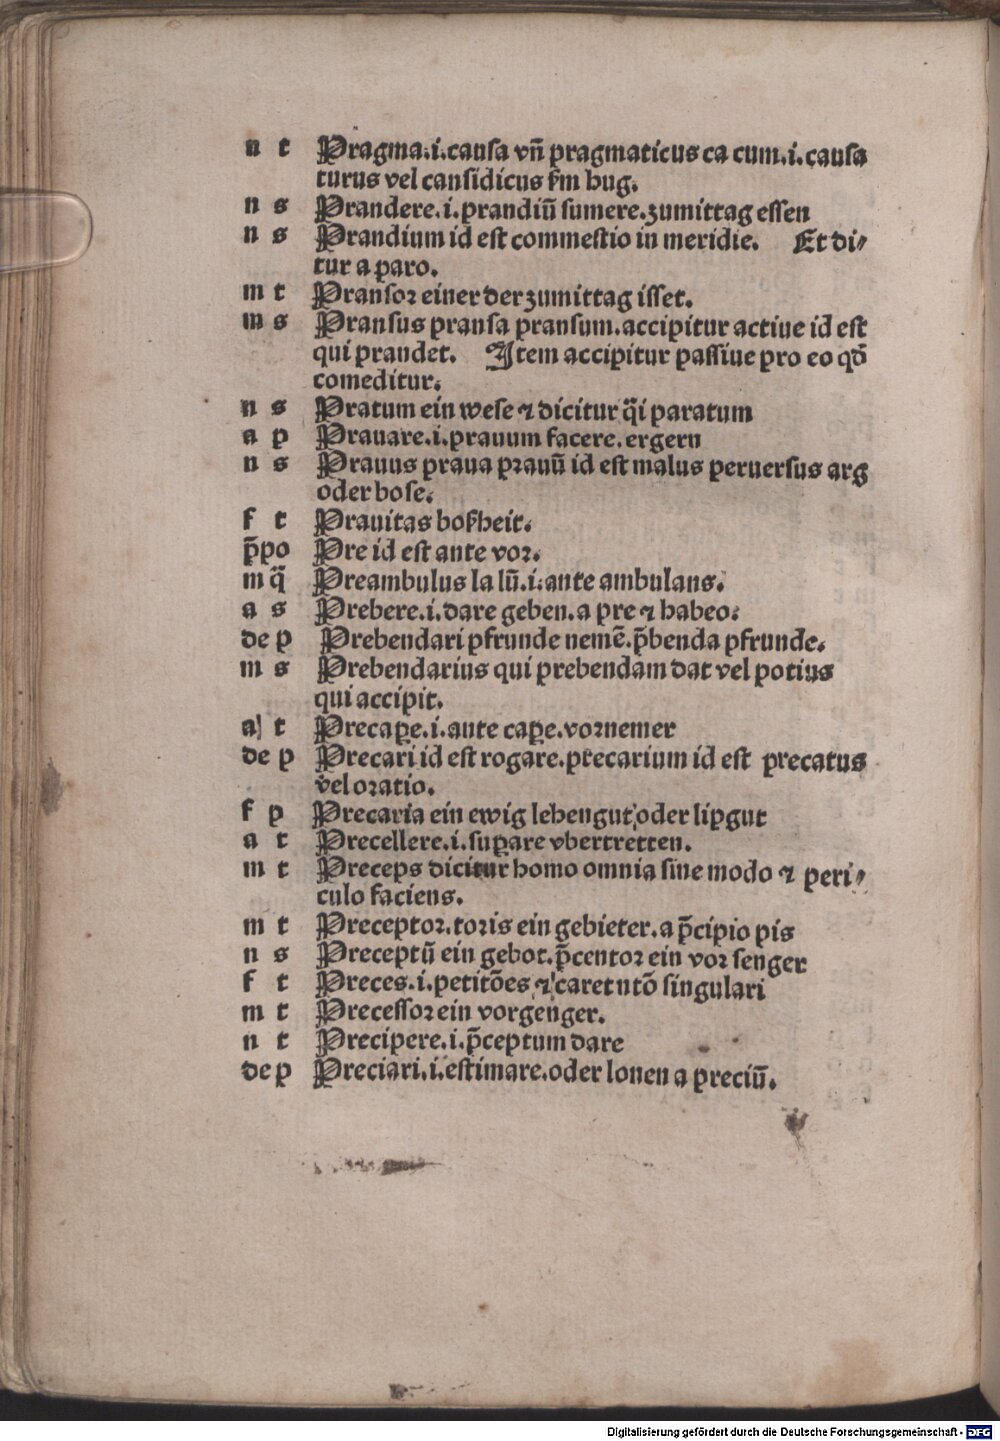 n t Pragma.i.causa vñ pragmaticus ca cum.i.causa
turus vel cansidicus ẜm hug.
n s Prandere.i.prandiū sumere.zumittag essen
n s Prandium id est commestio in meridie. Et di⸗
tur a paro.
m t Pransor einer der zumittag isset.
m s Pransus pransa pransum.accipitur actiue id est
qui prandet. Item accipitur passiue pro eo qd̄
comeditur.
n s Pratum ein wese ⁊ dicitur q̄i paratum
a p Prauare.i.prauum facere.ergern
n s Prauus praua prauū id est malus peruersus arg
oder bose.
f t Prauitas boſheit.
p̄po Pre id est ante vor.
m q̄ Preambulus la lū.i.ante ambulans.
a s Prebere.i.dare geben.a pre ⁊ habeo.
de p Prebendari pfrunde nemē.p̄benda pfrunde.
m s Prebendarius qui prebendam dat vel potius
qui accipit.
a t Precaꝑe.i.ante caꝑe.vornemer
de p Precari id est rogare.precarium id est precatus
vel oratio.
f p Precaria ein ewig lehengut oder lipgut
a t Precellere.i.suꝑare vbertretten.
m t Preceps dicitur homo omnia sine modo ⁊ peri⸗
culo faciens.
m t Preceptor.toris ein gebieter.a p̄cipio pis
n s Preceptū ein gebot.p̄centor ein vor senger
f t Preces.i.petitōes ⁊ caret ntō singulari
m t Precessor ein vorgenger.
n t Precipere.i.p̄ceptum dare
de p Preciari.i.estimare.oder lonen a preciū.
Digitalisierung gefördert durch die Deutsche Forschungsgemeinschaft - DFG